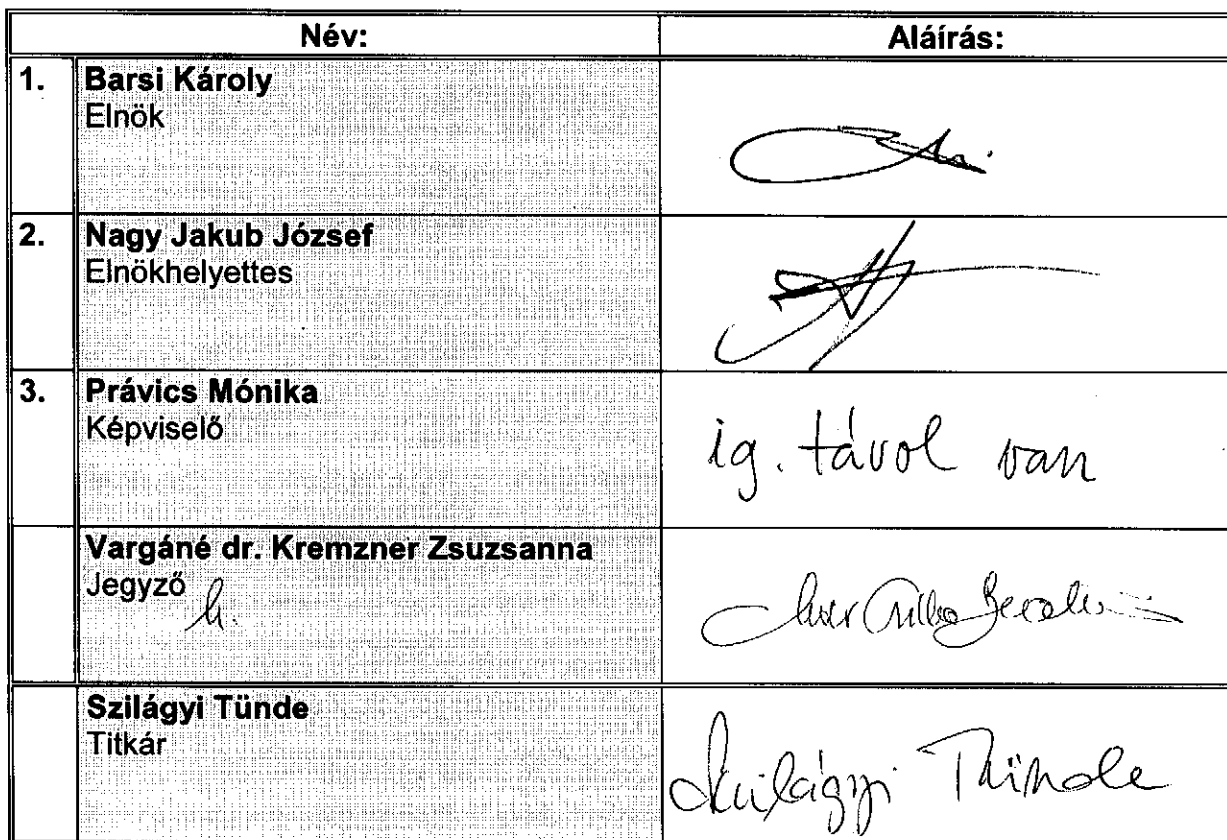 Név: Aláírás:
1. Barsi Károly
Elnök
2. Nagy Jakub József
Elnökhelyettes
3. Právics Mónika
Képviselő
ig. távol van
Vargáné dr. Kremzner Zsuzsanna
Jegyző h.
Szilágyi Tünde
Titkár
Szilágyi Tünde